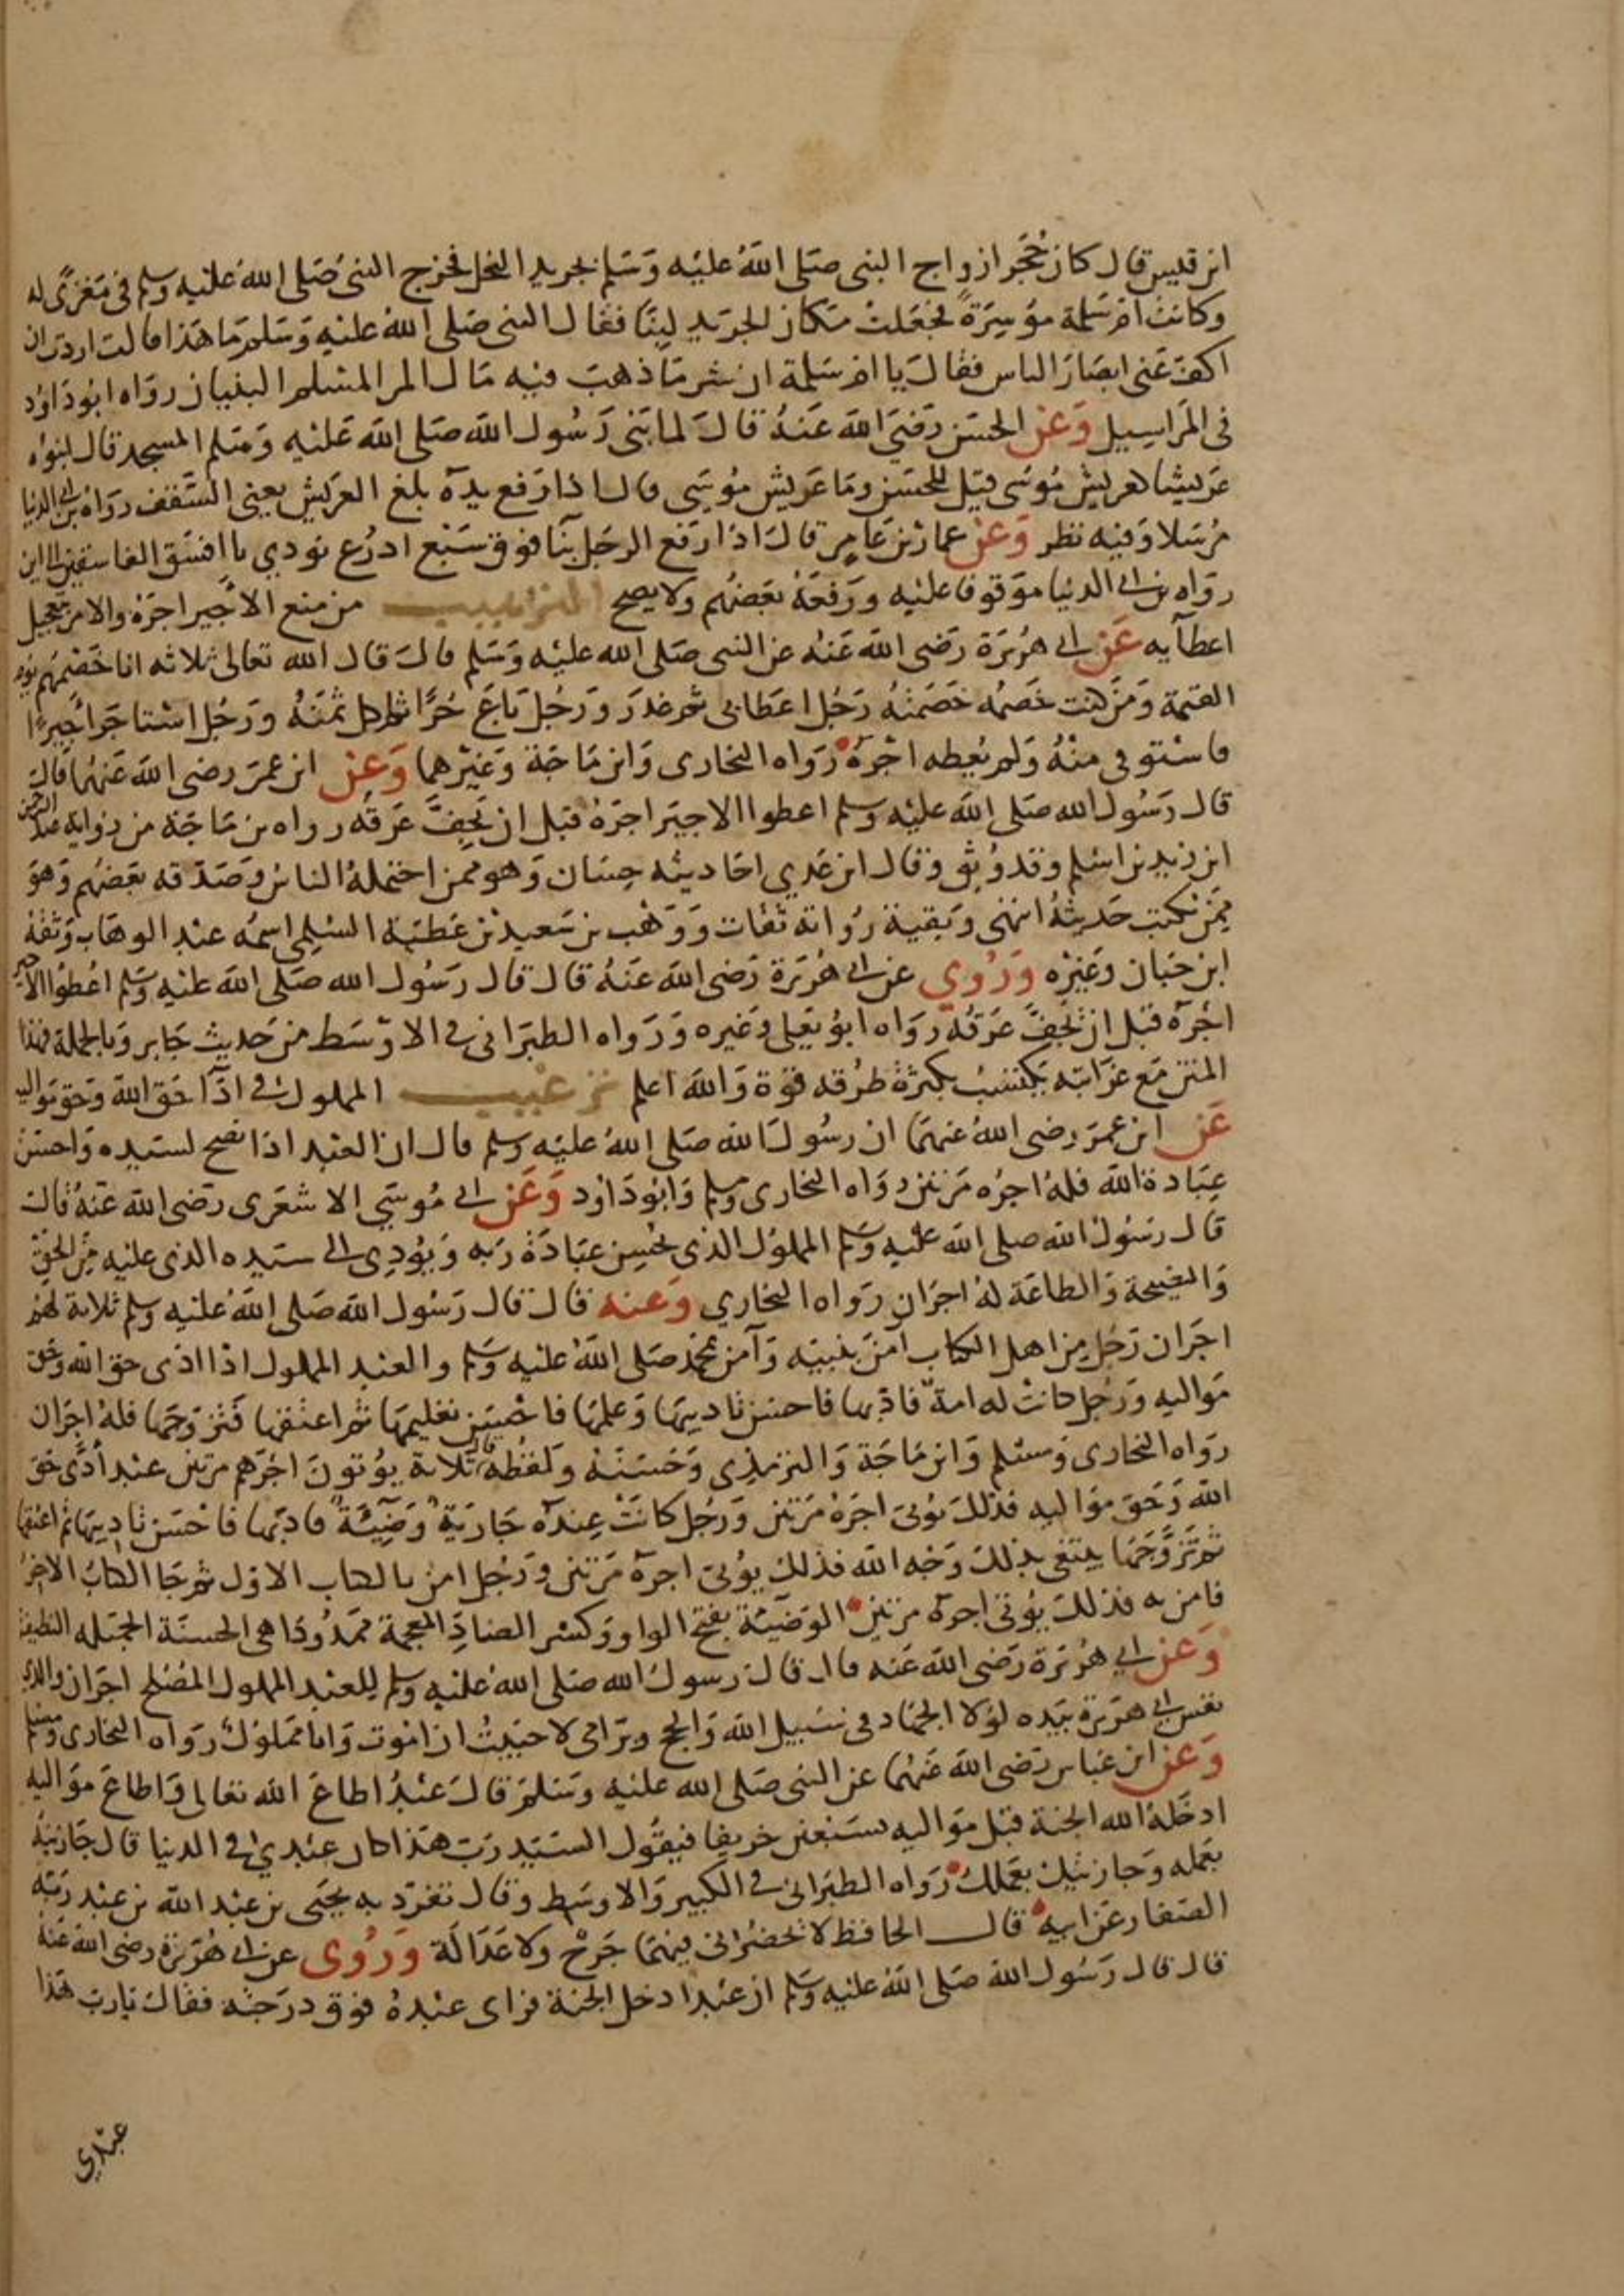 ابن قيس قال كان حُجَر ازواج النبى صَلى اللهُ عليْه وَسَلم بجريد النخل فخرج النبى صَلى اللهُ عَليْه وسلم فى مَغزًى له
وكانت اُم سَلمة مؤسِرَةً فجعَلت مكان الجرَيد لبِنًا فقال النبى صَلى الله عليْه وَسَلم مَا هَذا قالت اردت ان
اكف عَنى ابصَارَ الناس فقالَ يا ام سَلمة ان شر مَا ذهبَ فيْه مَال المر المسلم البنيان روَاه ابوُ دَاوُد
فى المَرَاسِيل وَعَن الحسَن رَضيَ الله عَنهُ قالَ لما بَنى رَسُول الله صَلى الله عَليْه وَسَلم المسجد قال ابنوُه
عَريشا كعريش مُوسَى قيْل للحسَن ومَا عَريش مُوسَى قال اذا رَفع يدَه بلغ العرَيش يعنى السَّقف روَاه بن ابى الدنيا
مُرسَلا وَفيْه نظر وَعَن عمار بن عَامِر قالَ اذا رَفع الرجَل بنَا فوق سَبْع اذرُع نودي يا افسَق الفاسقين الى اين
روَاه بن ابى الدنيا موَقوفا عليْه وَرَفعَهُ بَعضهُم ولا يصح الترهيب من منع الاجَير اجرَهُ والامر بتعجيل
اعطآيه عَن ابى هُرَيرَة رَضى الله عَنهُ عن النبى صَلى الله عليْه وَسَلم قالَ قال الله تعالى ثلاثه انا خَصْمُهُم يوم
القيمة وَمَن كنت خَصمُه خَصَمتُهُ رَجُل اعطا بى ثم غدَر وَرَجُل بَاعَ حُرًّا فاكل ثمنَهُ وَرَجُل اسْتاجَر اَجيرًا
فاسْتوفى منْهُ وَلم يُعطه اجْرَهُ رَوَاه البخارى وَابن مَاجَة وَغيْرهما وَعَن ابن عمرَ رضى الله عَنهُما قالَ
قال رَسُول الله صَلى الله عليْه وسلم اعطوا الاجيَر اجرَهُ قبَل ان يَجفَّ عَرَقه رواه بن مَاجَة من رِوَايه عبد الرحمن
ابن زيد بن اسْلم وقد وُثق وقال ابن عَدي احَاديثه حِسَان وَهو ممن احْتملهُ الناسُ وَصَدّقه بَعضهُم وَهوَ
مِمَّن يُكتب حَديثهُ انتهى وَبقية رُوَاته ثقات وَوَهْب بن سَعيد بن عَطيَة السلمِى اسمُه عبد الوهَاب وَثقهُ
ابن حبَان وَغيْرُه وَرُوي عن ابى هُرَيرَة رَضى الله عَنهُ قال قال رَسُول الله صَلى الله عليْه وَسَلم اعْطوا الاجير
اجْرَه قبل ان يَجفَّ عَرَقُه روَاه ابوُ يَعلى وَغيره وَرَواه الطبَرانى فى الاوْسَط من حَديث جَابر وَبالجملة فهذا
المتن مَع غرَابته يَكتسب بكثرَة طرُقه قوّة وَالله اعلم ترغيب المملوك فى ادَآ حَق الله وَحَق مَوَاليه
عَن ابن عمرَ رضى اللهُ عَنهمَا ان رسُولَ الله صَلى اللهُ عليْه وسلم قال ان العَبد اذا نصَح لسَيده وَاحسَن
عِبَادة الله فلهُ اجرُه مَرتين روَاه البخارى ومسلم وَابوُ دَاوُد وَعَن ابى مُوسَى الاشعَرى رَضى الله عَنهُ قالَ
قال رَسُول الله صلى الله عليْه وَسَلم المملوُك الذى يحُسن عبَادَة رَبه وَيُؤدى الى سَيده الذى عليْه مِنَ الحَق
وَالنصيحة وَالطاعَة لهُ اجرَان رَواه البخاري وَعنه قالَ قال رَسُول الله صَلى الله عَليْه وسلم ثلاثة لهُم
اجرَان رَجُل مِن اهل الكتاب امنَ بنبيّه وَآمن بمحمد صَلى اللهُ عليْه وَسَلم والعبد المملوك اذا ادَّى حق الله وحَق
مَواليه وَرَجُل كانت له امة فادّبها فاحسن تادبيَها وَعلمهَا فاحْسَن تعليمهَا ثم اعتقها فتزوّجَها فلهُ اجرَان
روَاه البخارى وَمسلم وَابن مَاجَة وَالترمذِى وَحسّنَهُ وَلفظهُ قال ثلاثة يُؤتونَ اجُرَهم مرتين عبد ادَّى حَق
الله وَحَق موَاليه فذلكَ يُؤتى اجرَهُ مَرتين وَرَجُل كانَتْ عِندَه جَاريَة وَضيْئَة فادبهَا فاحْسَن تادِيبَها ثم اعتقها
ثم تزَوَّجَهَا يبتغى بذلكَ وَجْه الله فذلك يُؤتى اجرَه مَرتين وَرَجُل امن بالكتاب الاوّل ثم جَا الكتابُ الاخرُ
فامن به فذلك يُؤتى اجرَه مرتين الوَضيْئة بفتح الواو وَكسْر الضادِ المعجمة ممَدُودًا هى الحسنَة الجميله النظيفة
وَعَن ابي هُرَيرَة رَضى الله عَنه قال قالَ رسول الله صَلى اللهُ عليْه وسلم للعَبد المملوك المُصْلح اجرَان والذي
نفس ابى هرَيرَة بيَده لوْلا الجهَاد فى سَبيل الله وَالحج وبرّ امى لاحبَبتُ ان امُوت وَانا مَملوُك رَواه البخارى ومسلم
وَعَن ابن عَباس رَضى الله عَنهُما عن النبى صَلى الله عليْه وَسَلم قالَ عَبْدُ اطاعَ الله تعَالى وَاطاعَ موَاليه
ادخَلهُ الله الجنة قبَل مَوَاليه بسَبعين خريفا فيقوُل السَيد رَبّ هَذا كان عبْديْ فى الدنيا قال جَازيتهُ
بعَمله وَجازيتك بعَملك رَوَاه الطبَرانى فى الكبير وَالاوسَط وَقال تفرّد به يحيَى بن عَبد الله بن عبد رَبّه
الصَفار عَن ابيه قال الحافظ لا يحْضرُانى فيهمَا جَرْح ولا عَدَالَة وَرُوى عن ابى هُرَيرَة رضى الله عَنهُ
قال قال رَسُول الله صَلى الله عليْه وَسَلم ان عَبْدا دخل الجنة فراى عَبْدهُ فوق درَجَته فقال يَا ربّ هَذا
عبْدِي